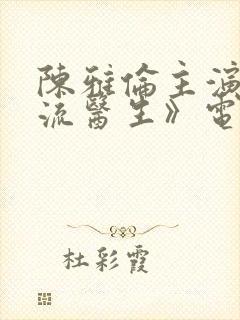 陳雅倫主演
流醫生》電
杜彩霞